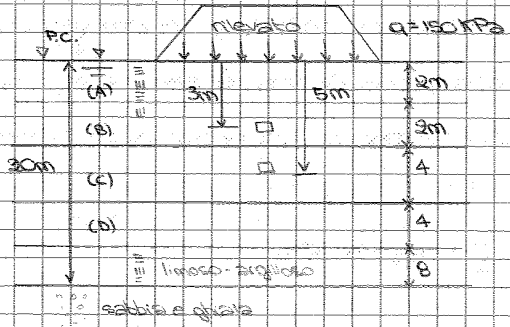 P.C.
rilevato
q=150 KPa
(A)
3m
5m
2m
(B)
2m
20m
(C)
4
(D)
4
limoso-argilloso
8
sabbia e ghiaia